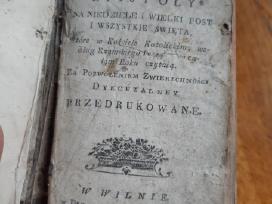 NA NIEDZIELE I WIELKI POST
I WSZYSTKIE SWIĘTA,
w Kościele Katolickim, we-
dług Rzymskiego
tym Roku czytaią.
Za Pozwoleniem Zwierzchności
Dyecezalney
PRZEDRUKOWANE.
W WILNIE